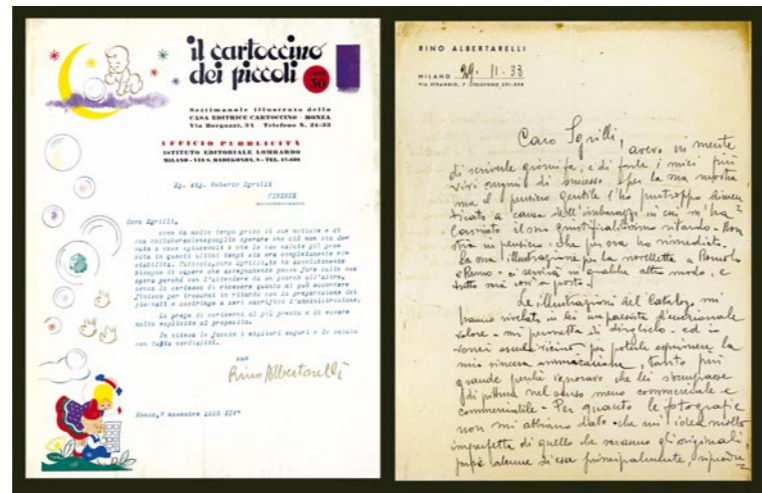 il cartoccino
dei piccoli
30
Settimanale illustrato della
CASA EDITRICE CARTOCCINO - MONZA
Via Borgazzi, 34 - Telefono N. 24-33
UFFICIO PUBBLICITÀ
ISTITUTO EDITORIALE LOMBARDO
Eg. Sig. Roberto Sgrilli
FIRENZE
Caro Sgrilli,
sono da molto tempo privo di sue notizie e di
sua collaborazione;voglio sperare che ciò non sia do-
e che la sua salute già pro-
vata in questi ultimi tempi sia ora completamente ri-
stabilita. Tuttavia,caro Sgrilli,ho io assolutamente
bisogno di sapere che assegnamento posso fare sulla sua
opera perchè con l'attendere da un giorno all'altro,
senza la certezza di ricevere quanto mi può occorrere
finisco per trovarmi in ritardo con la preparazione dei
giornali e costringo a seri sacrifici l'amministrazione.
La prego di scrivermi al più presto e di essere
molto esplicito al proposito.
In attesa le faccio i migliori auguri e la saluto
con tutta cordialità.
suo
Rino Albertarelli
Monza,7 novembre
RINO ALBERTARELLI
MILANO 29-11-33
VIA STRAMBIO, 7 - TELEFONO
Caro Sgrilli, avevo in mente
di scriverle giorni fa, e di farle i miei più
vivi auguri di successo per la sua mostra,
ma il pensiero gentile l'ho purtroppo dimen-
ticato a causa dell'imbarazzo in cui m'ha
lasciato il suo giustificatissimo ritardo - Non
stia in pensiero - che per ora ho rimediato.
La sua illustrazione per la novelletta a Romolo
e Remo - ci servirà in qualche altro modo, e
tutto sarà così a posto -
Le illustrazioni del Catalogo mi
hanno rivelato in lei un paesista d'eccezionale
valore - mi permetta di dirglielo - ed io
vorrei esserle vicino per poterle esprimere la
mia sincera ammirazione, tanto più
grande perchè ignoravo che lei si occupasse
di pittura nel senso meno commerciale e
commerciabile - Per quanto le fotografie
non mi abbiano dato che un'idea molto
imperfetta di quello che saranno gli originali,
di esse principalmente,